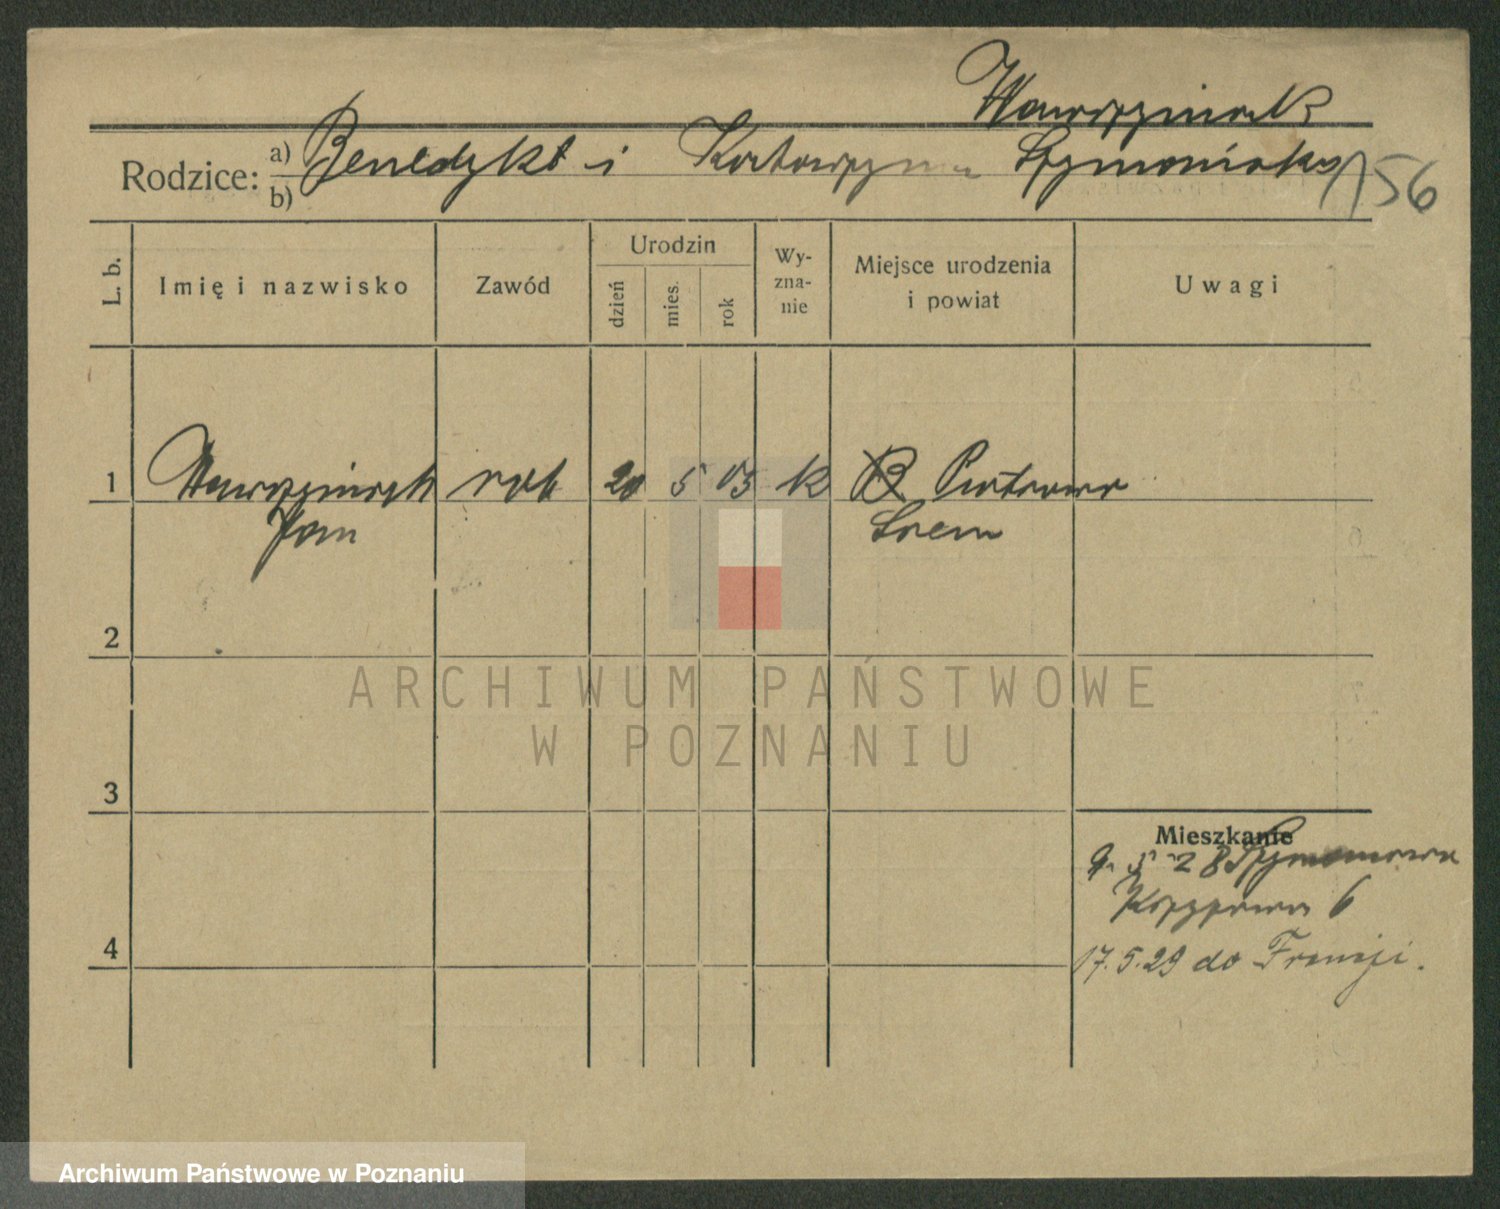 Wawrzyniak
Rodzice: a) Benedykt i Katarzyna Szymoniak
b)
156
L. b.
Imię i nazwisko
Zawód
Urodzin
dzień
mies.
rok
Wy-
zna-
nie
Miejsce urodzenia
i powiat
Uwagi
1 Wawrzyniak rob 20 5 05 k B Piotrowo
Jan Śrem
2
ARCHIWUM PAŃSTWOWE
W POZNANIU
3
Mieszkanie
9. 5 28
6
4
17.5.29 do Francji.
Archiwum Państwowe w Poznaniu